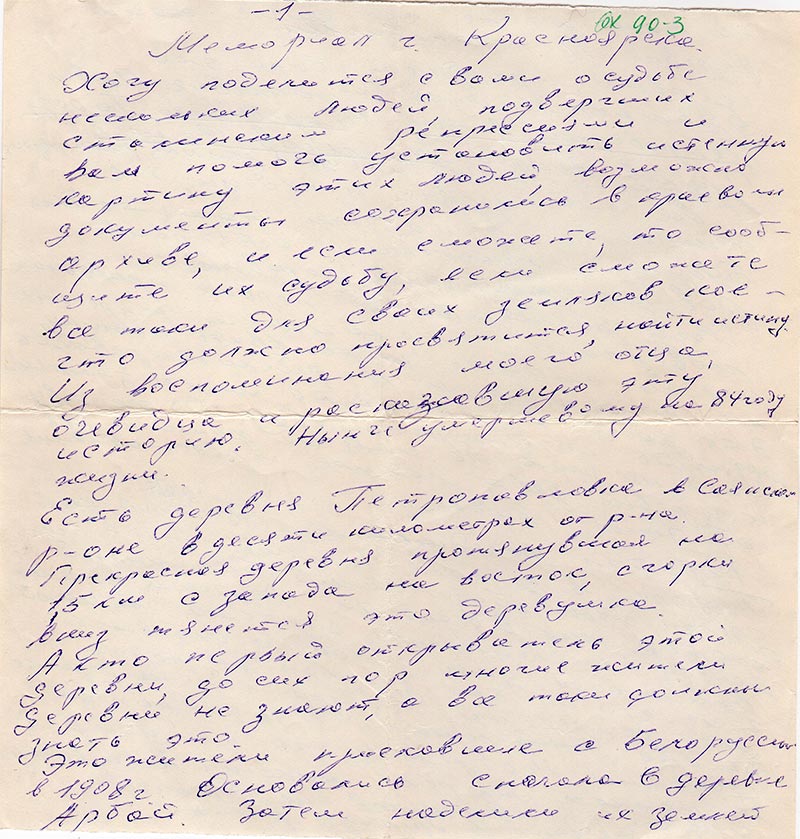 -1-
ОК 90-3
Мемориал г. Красноярска.
Хочу поделится с вами о судьбе
нескольких людей, подвергших
сталинским репрессиями и
вам помочь установить истенную
картину этих людей, возможно
документы сохранились в краевом
архиве, и если сможете, то сооб-
щите их судьбу, если сможете
все таки для своих земляков кое-
что должно просвятится, найти истину.
Из воспоминания моего отца,
очевидца и рассказавшую эту
историю. Нынче умершему на 84 году
жизни.
Есть деревня Петропавловка в Саянском
р-оне в десяти километрах от р-на.
Прекрасная деревня протянувшая на
15 км с запада на восток, с горки
вниз тянется это деревушка.
А кто первый открыватель этой
деревни, до сих пор многие жители
деревни не знают, а все таки должны
знать это.
Это жители приехавшие с Белоруссии
в 1908 г. Основались сначала в деревне
Арбай. Затем наделили их землей